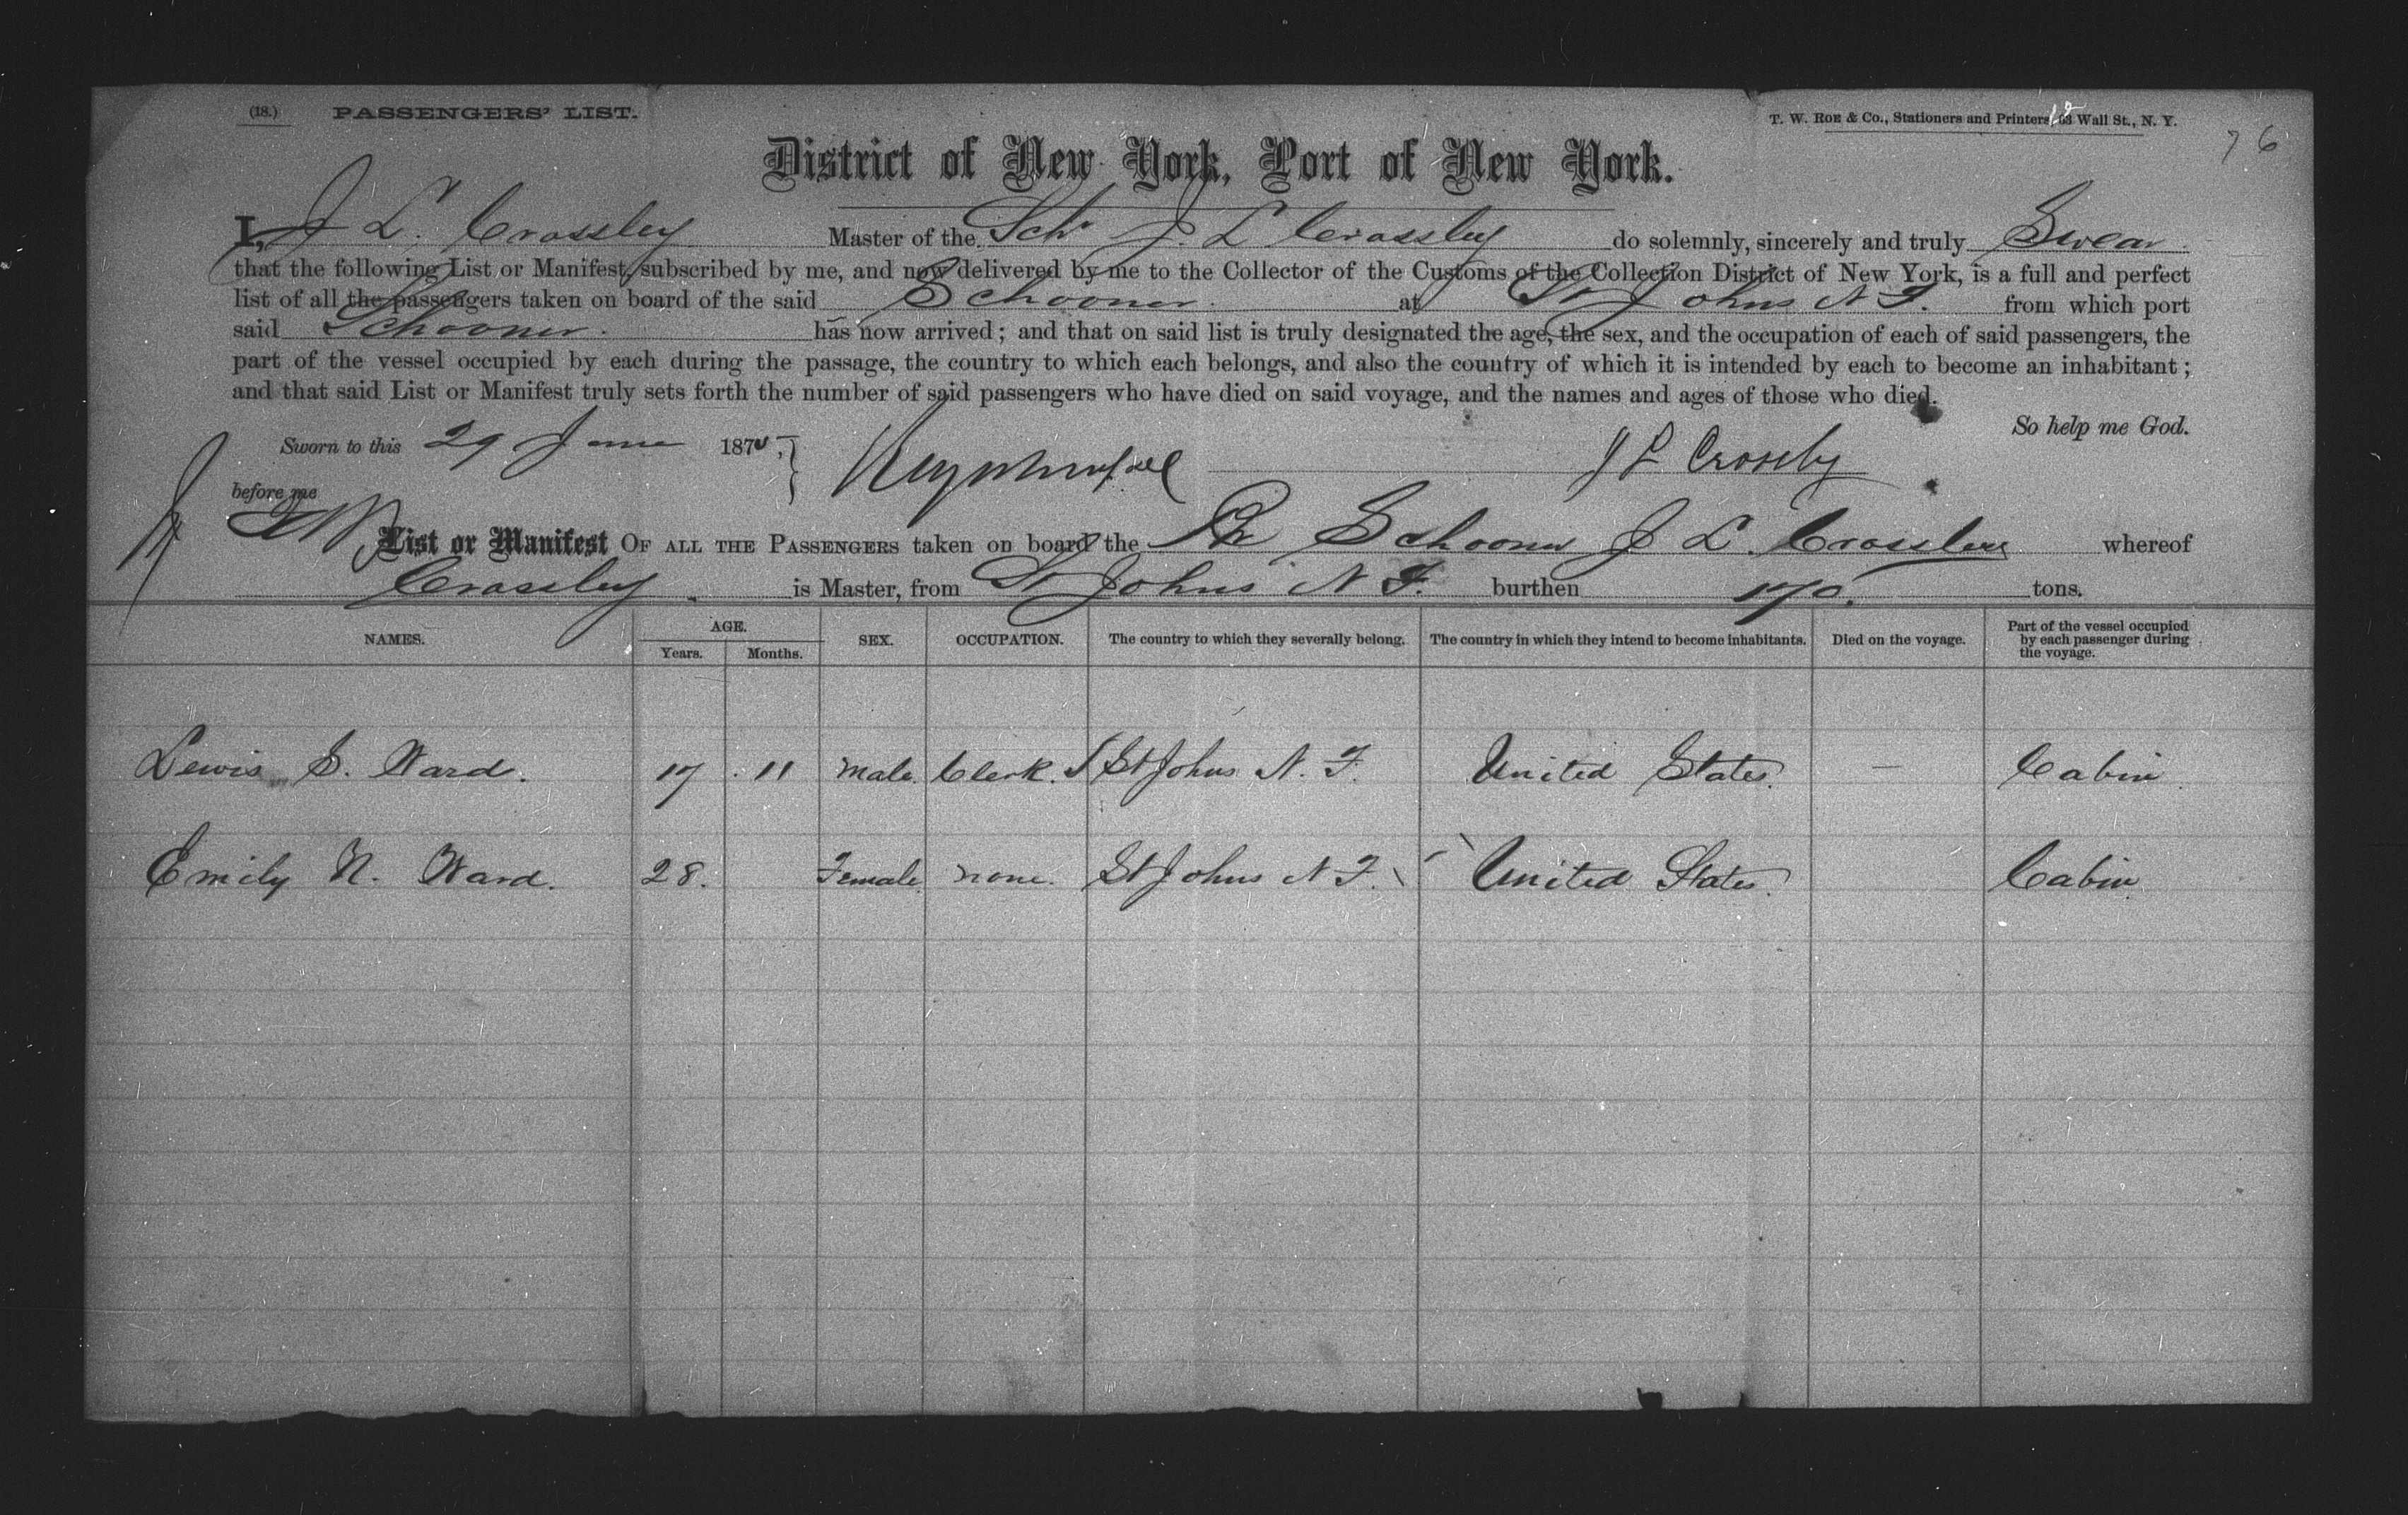 (18.) PASSENGERS' LIST. T. W. ROE & Co., Stationers and Printers, 63 Wall St., N. Y.
76
District of New York, Port of New York.
I, J L. Crossley Master of the Schr J. L Crossley do solemnly, sincerely and truly Swear
that the following List or Manifest, subscribed by me, and now delivered by me to the Collector of the Customs of the Collection District of New York, is a full and perfect
list of all the passengers taken on board of the said Schooner at St Johns N F. from which port
said Schooner. has now arrived; and that on said list is truly designated the age, the sex, and the occupation of each of said passengers, the
part of the vessel occupied by each during the passage, the country to which each belongs, and also the country of which it is intended by each to become an inhabitant;
and that said List or Manifest truly sets forth the number of said passengers who have died on said voyage, and the names and ages of those who died.
So help me God.
Sworn to this 29 June 187 J L Crossley
before me
List or Manifest OF ALL THE PASSENGERS taken on board the Br Schooner J L. Crossley whereof
Crossley. is Master, from St Johns N F. burthen 170. tons.
NAMES. AGE. Years. Months. SEX. OCCUPATION. The country to which they severally belong. The country in which they intend to become inhabitants. Died on the voyage. Part of the vessel occupied by each passenger during the voyage.
Lewis S. Ward. 17 11 Male. Clerk. St Johns N. F. United States. — Cabin
Emily N. Ward. 28. Female. none. St Johns N F. United States. Cabin